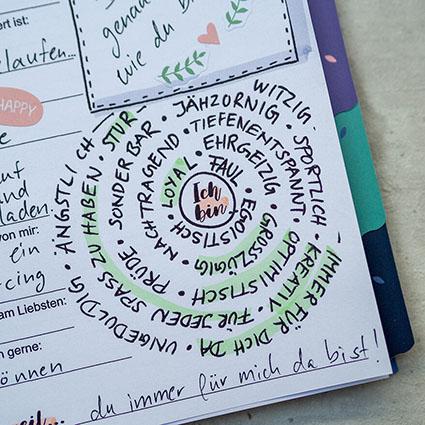 genau
wie du b
rt ist:
laufen...
HAPPY
e
uf
und
laden.
von mir:
ein
cing
am Liebsten:
gerne:
önnen
Ich
bin
LOYAL · FAUL · EGOISTISCH ·
NACHTRAGEND · EHRGEIZIG · GROSSZÜGIG ·
PRÜDE · SONDERBAR · TIEFENENTSPANNT · OPTIMISTISCH ·
FÜR JEDEN SPASS ZU HABEN · STUR · JÄHZORNIG · SPORTLICH · KREATIV ·
UNGEDULDIG · ÄNGSTLICH – WITZIG – IMMER FÜR DICH DA
eil... du immer für mich da bist!